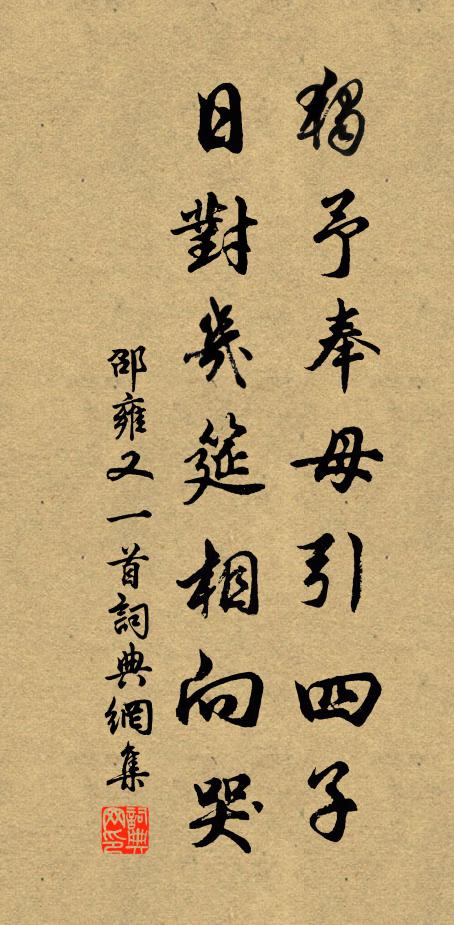 獨予奉母引四子
日對几筵相向哭
邵雍又一首詞典網集
詞典網印